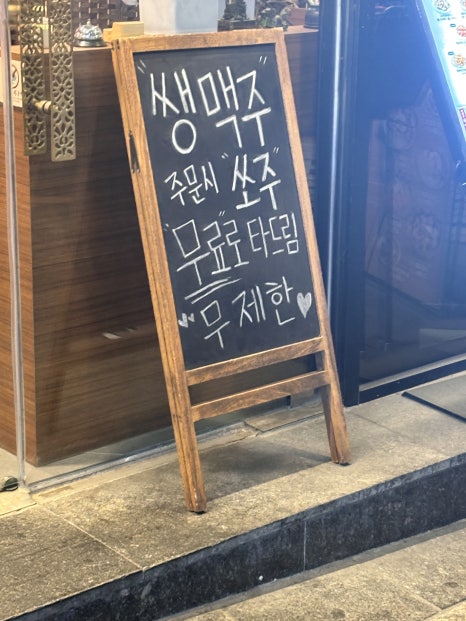 "쌩맥주"
주문시 "쏘주"
"무료"로 타드림
무제한